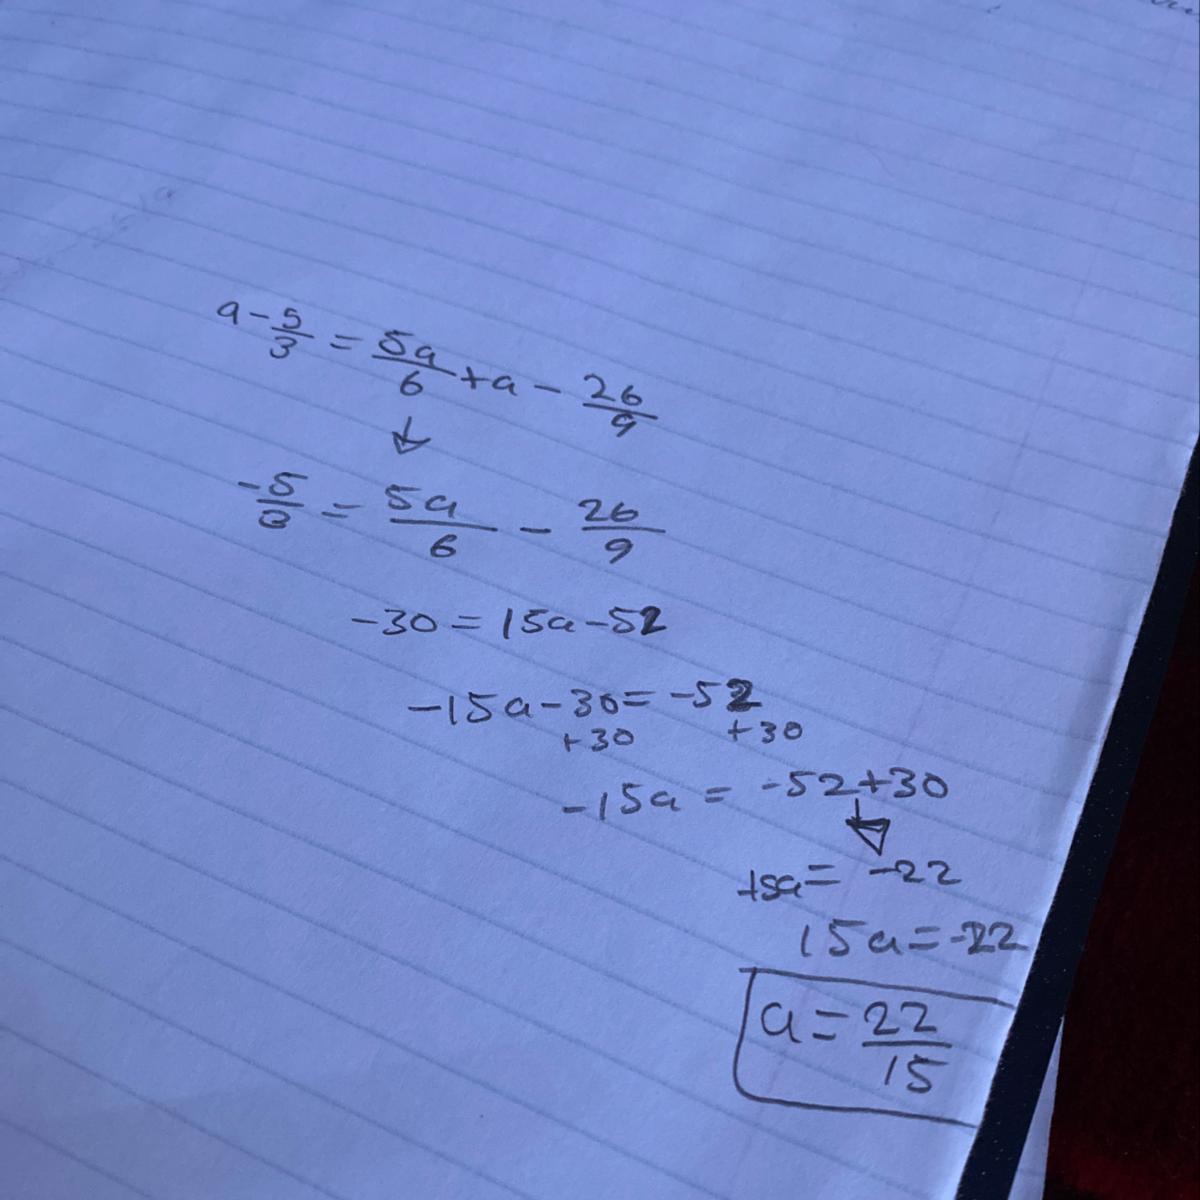 a - 5/3 = 5a/6 + a - 26/9
↓
-5/3 = 5a/6 - 26/9
-30 = 15a - 52
-15a - 30 = -52
+30 +30
-15a = -52 + 30
↓
15a = -22
15a = -22
a = 22/15